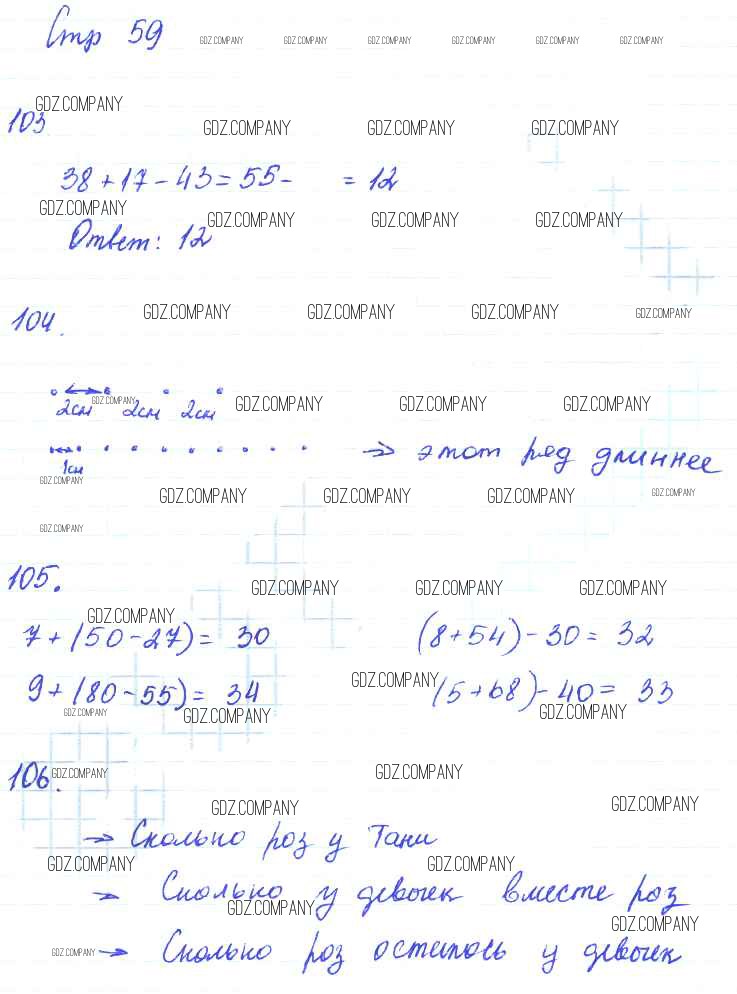 Стр 59
GDZ.COMPANY GDZ.COMPANY GDZ.COMPANY GDZ.COMPANY GDZ.COMPANY GDZ.COMPANY
GDZ.COMPANY
103
GDZ.COMPANY GDZ.COMPANY GDZ.COMPANY
38+17-43=55- =12
GDZ.COMPANY GDZ.COMPANY GDZ.COMPANY GDZ.COMPANY
Ответ: 12
104.
GDZ.COMPANY GDZ.COMPANY GDZ.COMPANY GDZ.COMPANY
2см 2см 2см
GDZ.COMPANY GDZ.COMPANY GDZ.COMPANY GDZ.COMPANY
→ этот ряд длиннее
1см
GDZ.COMPANY
GDZ.COMPANY GDZ.COMPANY GDZ.COMPANY GDZ.COMPANY
GDZ.COMPANY
105.
GDZ.COMPANY GDZ.COMPANY GDZ.COMPANY
GDZ.COMPANY
7+(50-27)= 30 (8+54)-30= 32
GDZ.COMPANY
9+(80-55)= 34 (5+68)-40= 33
GDZ.COMPANY GDZ.COMPANY GDZ.COMPANY
106.
GDZ.COMPANY GDZ.COMPANY
GDZ.COMPANY GDZ.COMPANY
→ Сколько роз у Тани
GDZ.COMPANY GDZ.COMPANY
→ Сколько у девочек вместе роз
GDZ.COMPANY GDZ.COMPANY
GDZ.COMPANY → Сколько роз осталось у девочек